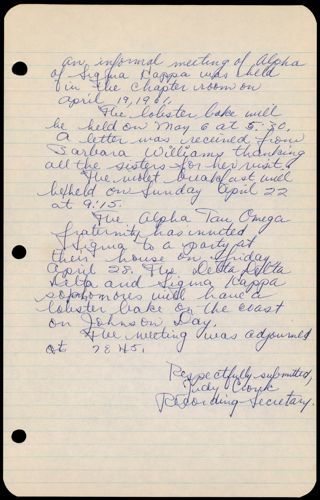 An informal meeting of Alpha
of Sigma Kappa was held
in the chapter room on
April 19, 1961.
The lobster bake will
be held on May 6 at 5:30.
A letter was received from
Barbara Williams thanking
all the sisters for her visit.
The violet breakfast will
be held on Sunday April 22
at 9:15.
The Alpha Tau Omega
fraternity has invited
Sigma to a party at
their house on Friday
April 28. The Delta Delta
Delta and Sigma Kappa
sophomores will have a
lobster bake on the coast
on Johnson Day.
The meeting was adjourned
at 7:45.
Respectfully submitted,
Judy
Recording Secretary.